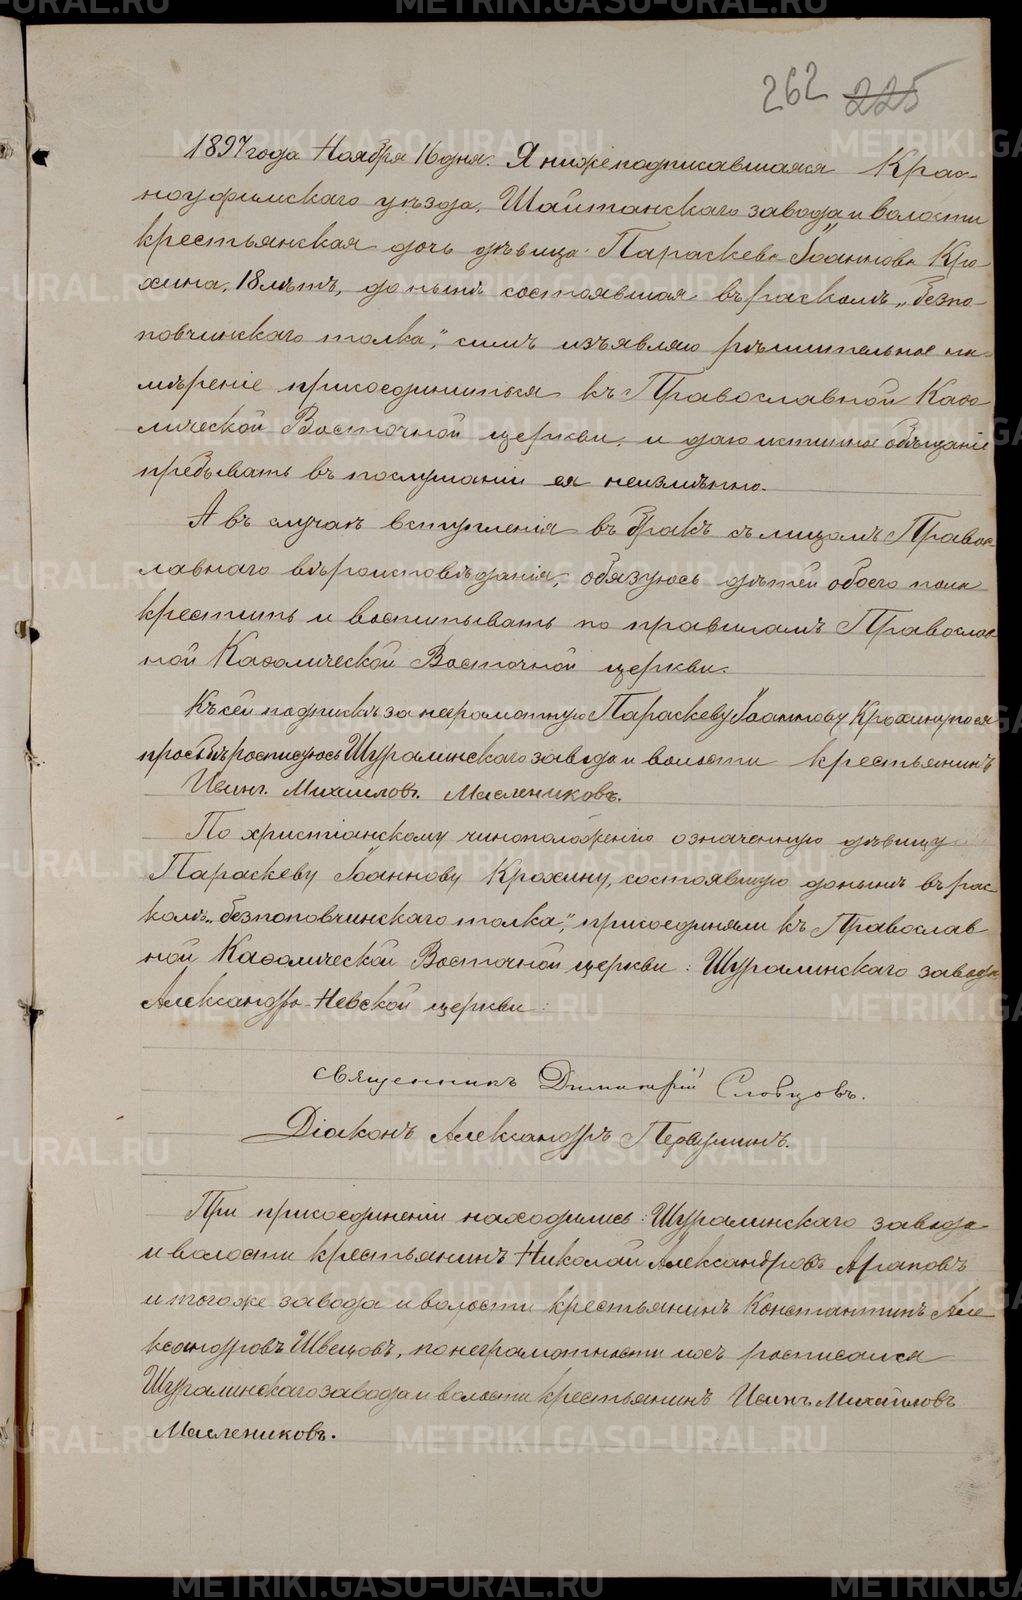 262 225
1897 года Ноября 16 дня. Я нижеподписавшаяся Крас-
ноуфимскаго уѣзда, Шайтанскаго завода и волости
крестьянская дочь дѣвица Параскева Іоаннова Кро
хина, 18 лѣтъ, донынѣ состоявшая въ расколѣ „безпо-
повчинскаго толка", симъ изъявляю рѣшительное на-
мѣреніе присоединиться къ Православной Каѳо
лической Восточной церкви, и даю истинное обѣщаніе
пребывать въ послушаніи ея неизмѣнно.
А въ случаѣ вступленія въ бракъ съ лицомъ Правос
лавнаго вѣроисповѣданія, обязуюсь дѣтей обоего пола
крестить и воспитывать по правиламъ Православ
ной Каѳолической Восточной церкви.
Къ сей подпискѣ за неграмотную Параскеву Іоаннову Крохину по ея
просьбѣ росписуюсь Шуралинскаго завода и волости крестьянинъ
Иванъ Михаиловъ Маслениковъ.
По христіанскому чиноположенію означенную дѣвицу
Параскеву Іоаннову Крохину, состоявшую донынѣ въ рас
колѣ „безпоповчинскаго толка", присоединяли къ Православ
ной Каѳолической Восточной церкви: Шуралинскаго завода
Александро-Невской церкви:
Священникъ Димитрій Словцовъ.
Діаконъ Александръ Первушинъ.
При присоединеніи находились: Шуралинскаго завода
и волости крестьянинъ Николай Александровъ Араповъ
и тогоже завода и волости крестьянинъ Константинъ Але
ксандровъ Швецовъ, по неграмотности ихъ росписался
Шуралинскаго завода и волости крестьянинъ Иванъ Михаиловъ
Маслениковъ.
METRIKI.GASO-URAL.RU